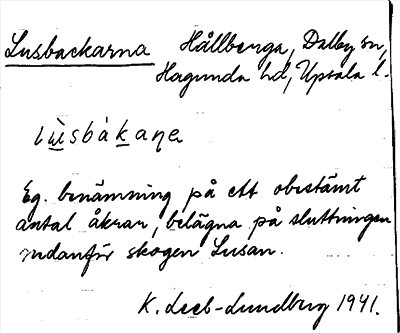 Lusbackarna Hållberga, Dalby sn,
Hagunda hd, Upsala l.
lùsbákaṇe
Eg. benämning på ett obestämt
antal åkrar, belägna på sluttningen
nedanför skogen Lusan.
K. Leeb-Lundberg 1941.